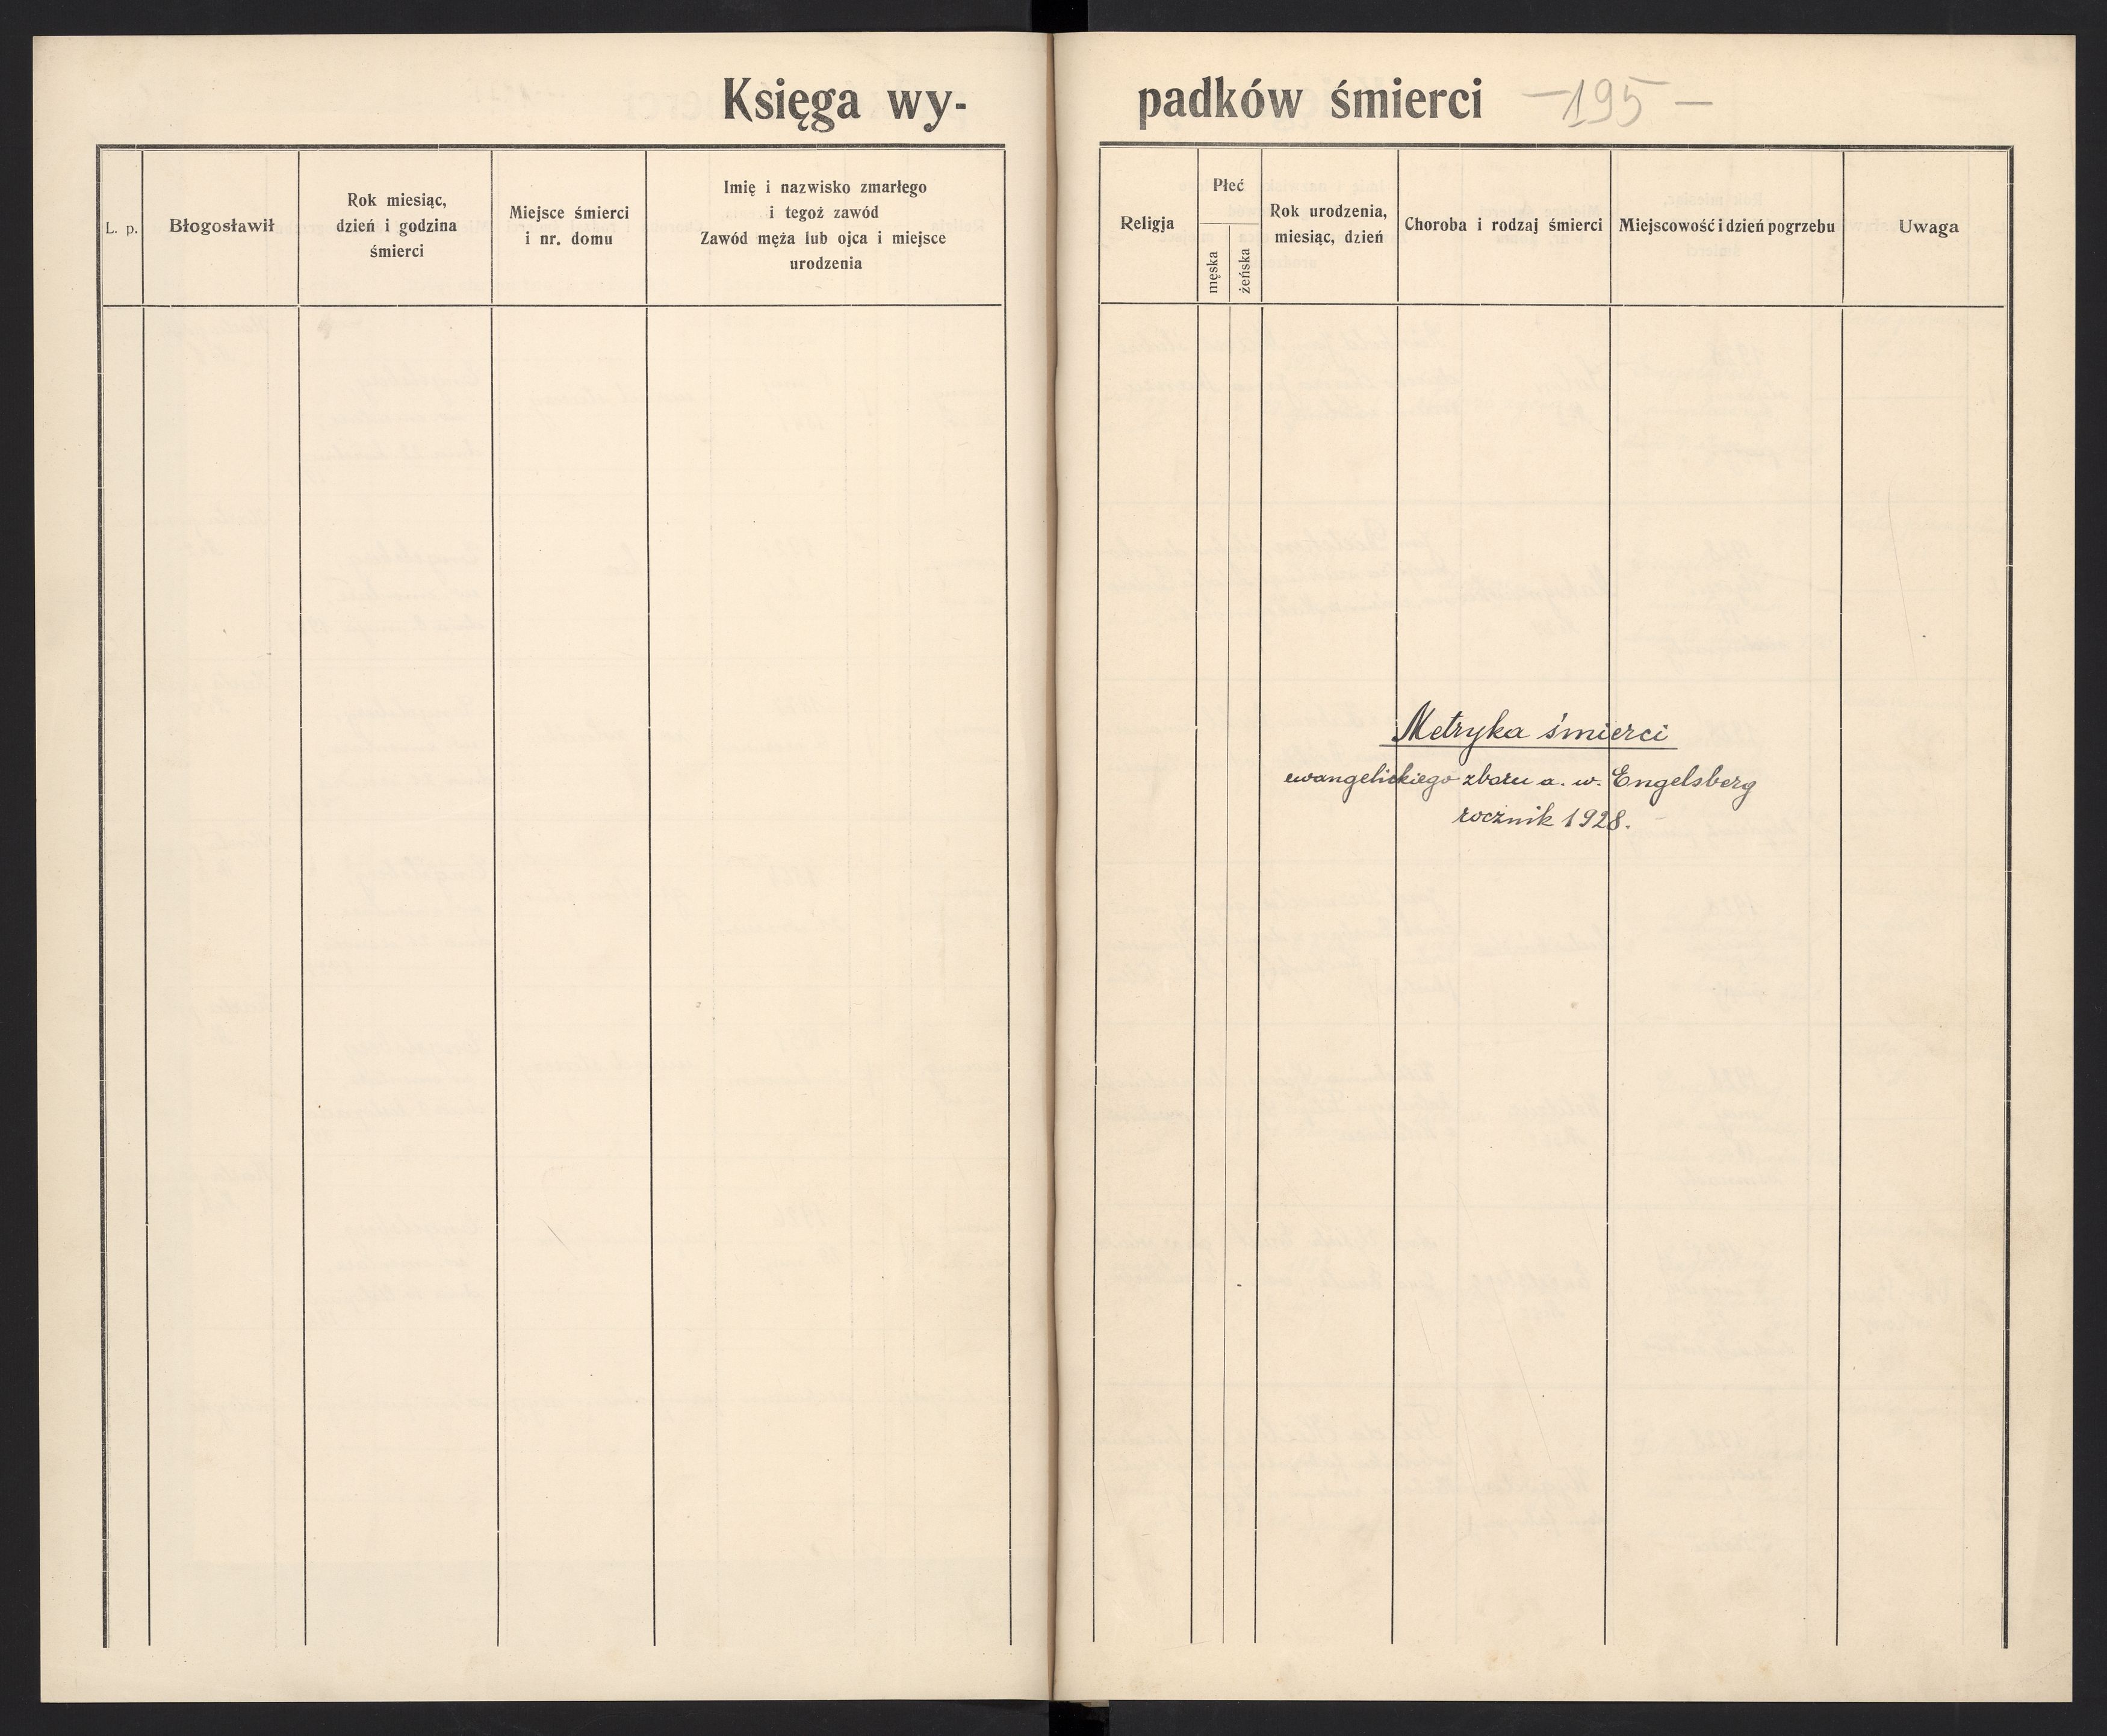 Księga wy-
L. p.
Błogosławił
Rok miesiąc,
dzień i godzina
śmierci
Miejsce śmierci
i nr. domu
Imię i nazwisko zmarłego
i tegoż zawód
Zawód męża lub ojca i miejsce
urodzenia
padków śmierci —195—
Religja
Płeć
męska
żeńska
Rok urodzenia,
miesiąc, dzień
Choroba i rodzaj śmierci
Miejscowość i dzień pogrzebu
Uwaga
Metryka śmierci
ewangelickiego zboru a. w. Engelsberg
rocznik 1928.